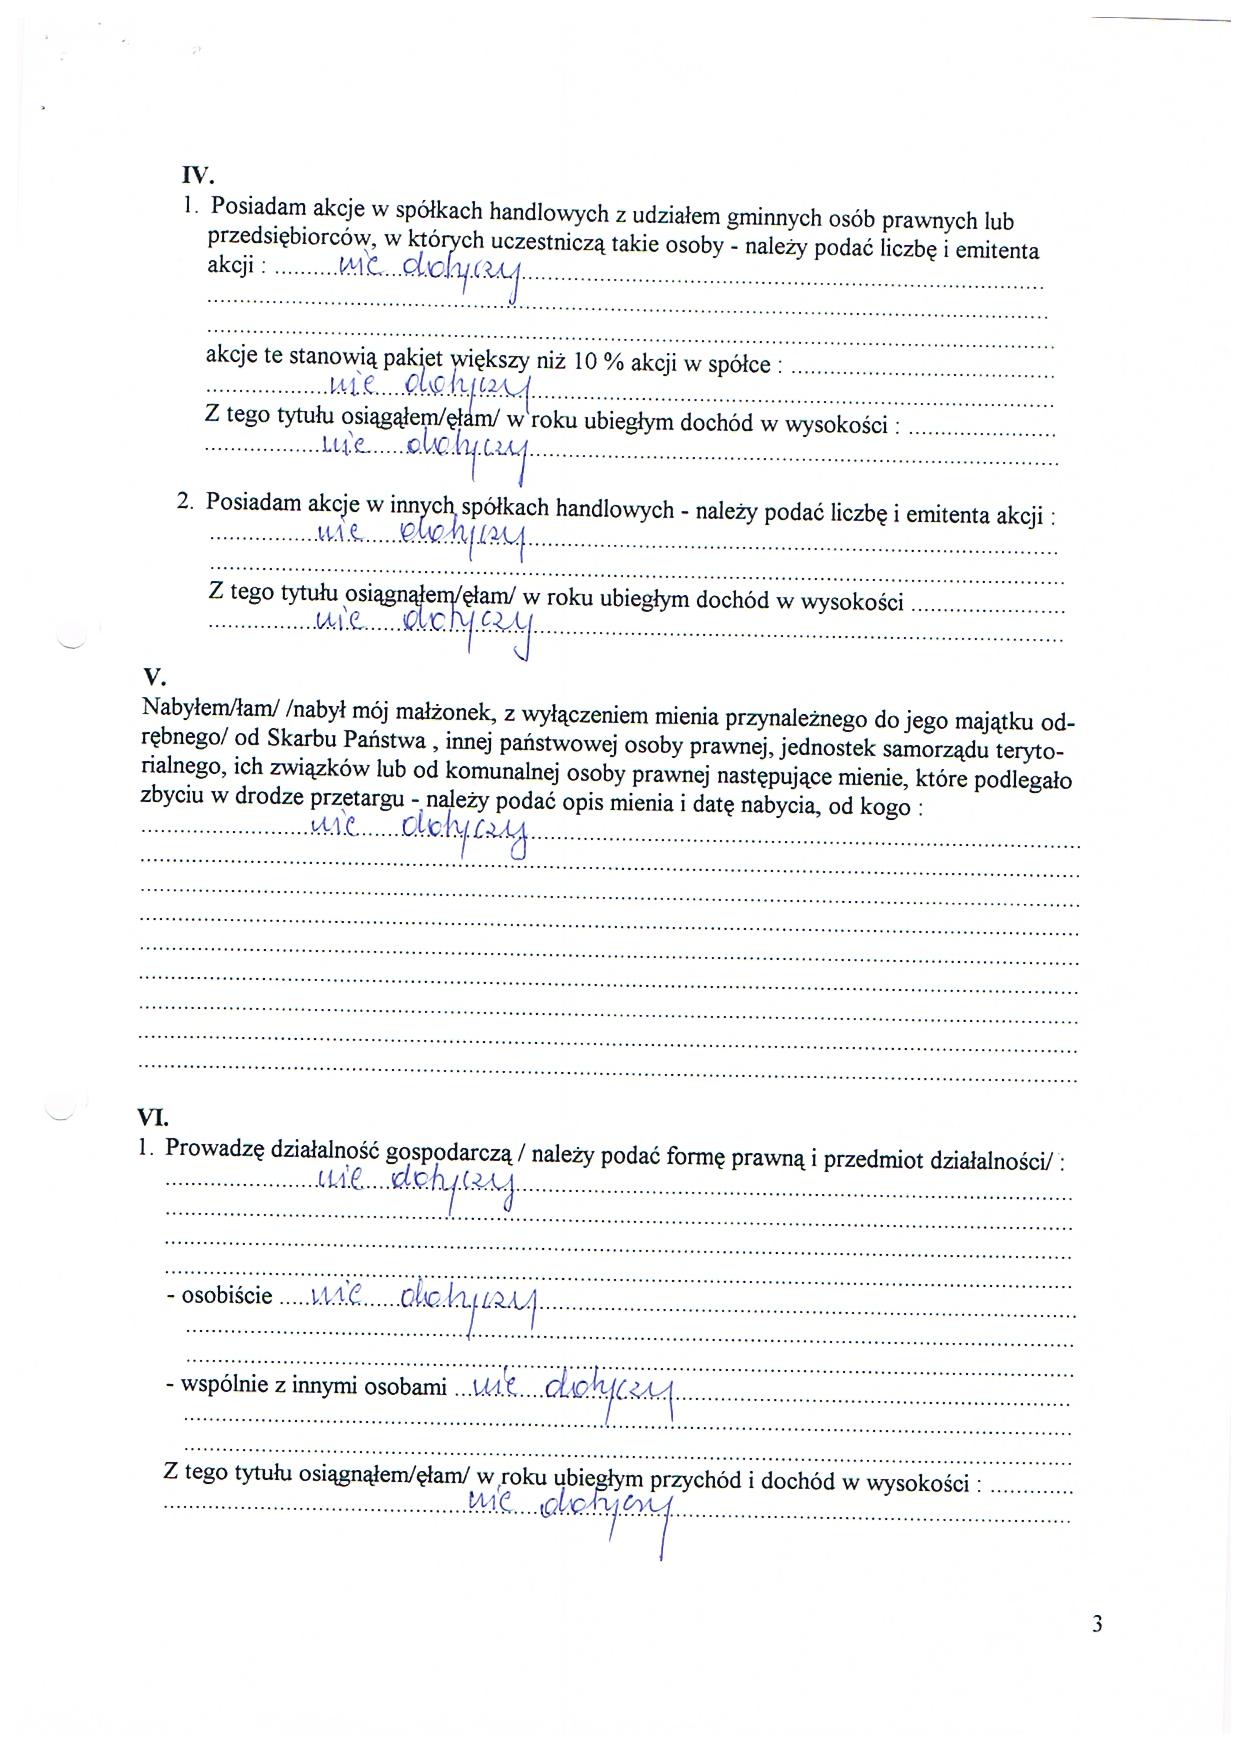 IV.
1. Posiadam akcje w spółkach handlowych z udziałem gminnych osób prawnych lub
przedsiębiorców, w których uczestniczą takie osoby - należy podać liczbę i emitenta
akcji : .........nie dotyczy..............................
akcje te stanowią pakiet większy niż 10 % akcji w spółce : ..............................
nie dotyczy
Z tego tytułu osiągąłem/ęłam/ w roku ubiegłym dochód w wysokości : ....................
nie dotyczy
2. Posiadam akcje w innych spółkach handlowych - należy podać liczbę i emitenta akcji :
nie dotyczy
Z tego tytułu osiągnąłem/ęłam/ w roku ubiegłym dochód w wysokości ....................
nie dotyczy
V.
Nabyłem/łam/ /nabył mój małżonek, z wyłączeniem mienia przynależnego do jego majątku od-
rębnego/ od Skarbu Państwa , innej państwowej osoby prawnej, jednostek samorządu teryto-
rialnego, ich związków lub od komunalnej osoby prawnej następujące mienie, które podlegało
zbyciu w drodze przetargu - należy podać opis mienia i datę nabycia, od kogo :
nie dotyczy
VI.
1. Prowadzę działalność gospodarczą / należy podać formę prawną i przedmiot działalności/ :
nie dotyczy
- osobiście .....nie dotyczy..............................
- wspólnie z innymi osobami ...nie dotyczy..............................
Z tego tytułu osiągnąłem/ęłam/ w roku ubiegłym przychód i dochód w wysokości : .............
nie dotyczy
3